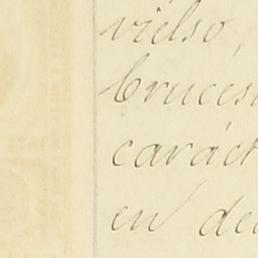 vielso,
bruces
caráct
en de